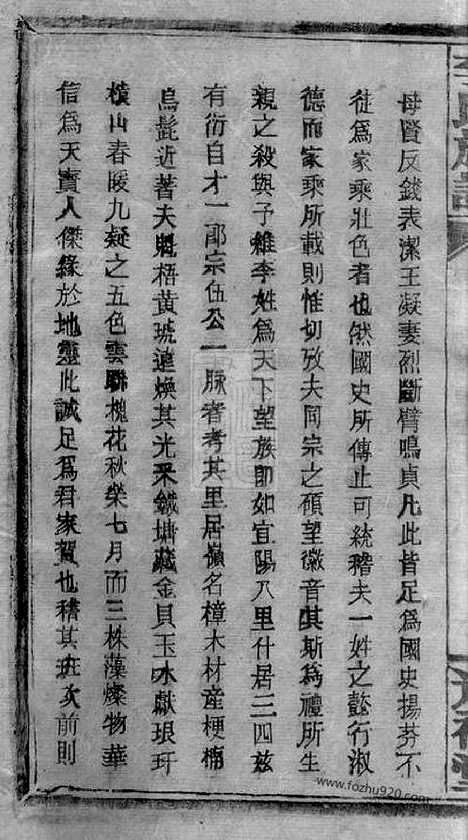 母賢反錢表潔王凝妻烈斷臂鳴貞凡此皆足為國史揚芬不
徒為家乘壯色者也然國史所傳止可統稽夫一姓之懿行淑
德而家乘所載則惟切攷夫同宗之碩望徽音斯為禮所生
親之殺與予維李姓為天下望族即如宜陽八里什居三四茲
有衍自才一郎宗伍公一脉者考其里居嶺名樟木材産梗楠
烏髭近著夫魁梧黃琥遠煥其光釆鐵塘藏金貝玉水獻琅玕
橫山春暖九疑之五色雲聯槐花秋榮七月而三株藻燦物華
信為天寳人傑緣於地靈此誠足為君家賀也稽其班次前則
www.fozhu920.com